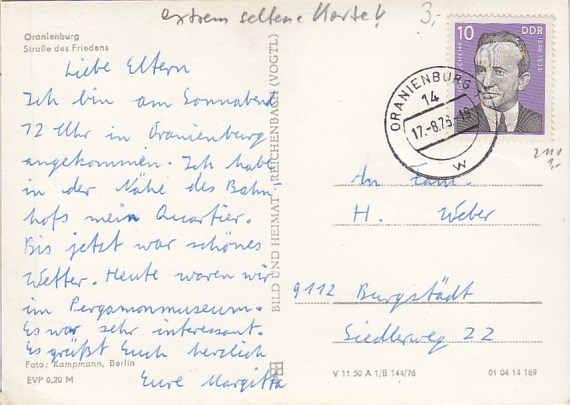 extrem seltene Karte!
3,-
Oranienburg
Straße des Friedens
Liebe Eltern
Ich bin am Sonnabend
12 Uhr in Oranienburg
angekommen. Ich habe
in der Nähe des Bahn-
hofs mein Quartier.
Bis jetzt war schönes
Wetter. Heute waren wir
im Pergamonmuseum.
Es war sehr interessant.
Es grüßt Euch herzlich
Eure Margitta
Foto: Kampmann, Berlin
EVP 0,20 M
BILD UND HEIMAT REICHENBACH (VOGTL)
10 DDR
ORANIENBURG 1
14
17.-8.76-18
w
2110
1,-
An Fam.
H. Weber
9112 Burgstädt
Siedlerweg 22
V 11 50 A 1/B 144/76
01 04 14 189